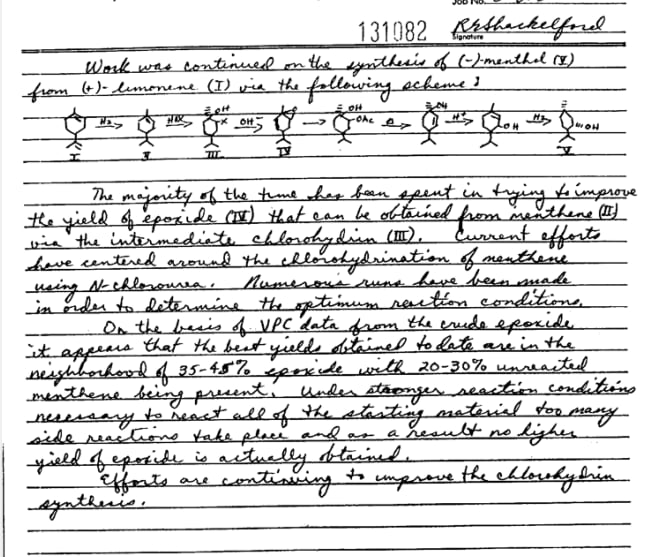 JOB NO.
131082 RRShackelford
Signature
Work was continued on the synthesis of (-)-menthol (V)
from (+)-limonene (I) via the following scheme:
OH OH OH
H2 HOX X OH- OAc Δ H+ OH H2 OH
I II III IV V
The majority of the time has been spent in trying to improve
the yield of epoxide (IV) that can be obtained from menthene (II)
via the intermediate chlorohydrin (III). Current efforts
have centered around the chlorohydrination of menthene
using N-chlorourea. Numerous runs have been made
in order to determine the optimum reaction conditions.
On the basis of VPC data from the crude epoxide
it appears that the best yields obtained to date are in the
neighborhood of 35-45% epoxide with 20-30% unreacted
menthene being present. Under stronger reaction conditions
necessary to react all of the starting material too many
side reactions take place and as a result no higher
yield of epoxide is actually obtained.
Efforts are continuing to improve the chlorohydrin
synthesis.